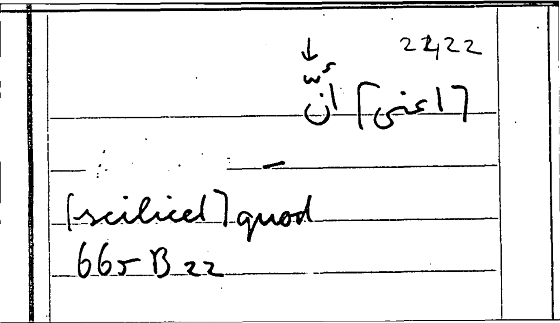 22,22
↓
[اعنى] أنّ
—
[scilicet] quod
665 B 22